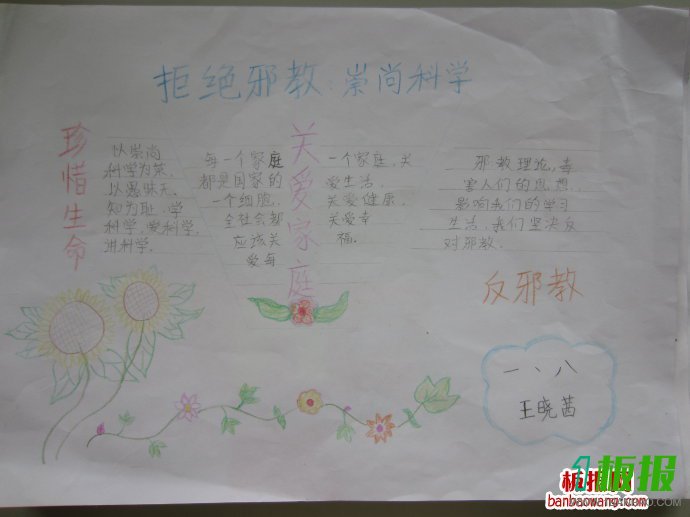 拒绝邪教:崇尚科学
珍惜生命
以崇尚
科学为荣,
以愚昧无
知为耻.学
科学,爱科学,
讲科学.
每一个家庭
都是国家的
一个细胞,
全社会都
应该关
爱每
关爱家庭
一个家庭,关
爱生活,
关爱健康,
关爱幸
福.
邪教理论,毒
害人们的思想,
影响我们的学习
生活,我们坚决反
对邪教.
反邪教
一、八
王晓茜
板报
板报网
banbaowang.com